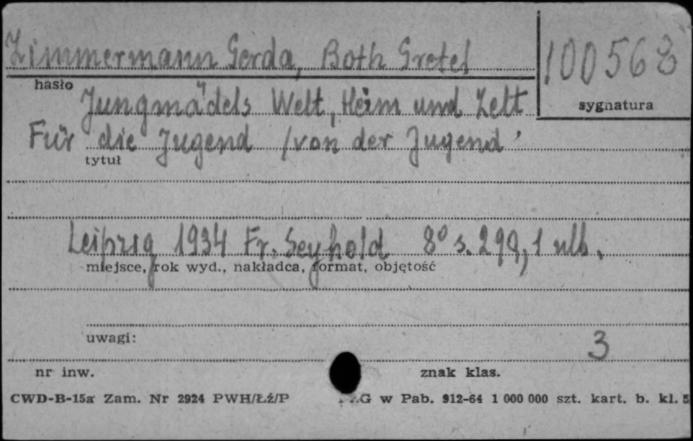 Zimmermann Gerda, Both Gretel
100568
hasło
sygnatura
Jungmädels Welt, Heim und Zelt
Für die Jugend /von der Jugend
tytuł
Leipzig 1934 Fr. Seyhold 8° s. 298, 1 nlb.
miejsce, rok wyd., nakładca, format, objętość
uwagi:
3
nr inw.
znak klas.
CWD-B-15a Zam. Nr 2924 PWH/Łź/P
G w Pab. 912-64 1 000 000 szt. kart. b. kl. 5